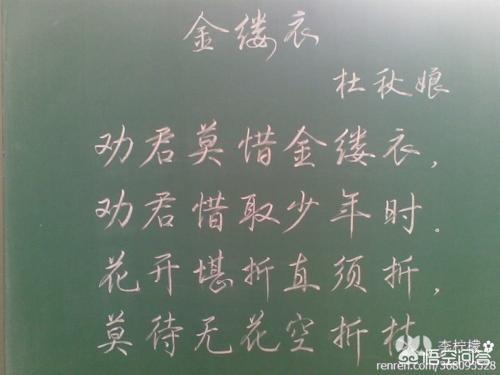 金缕衣
杜秋娘
劝君莫惜金缕衣，
劝君惜取少年时。
花开堪折直须折，
莫待无花空折枝
李柠檬
悟空问答
renren.com/368095328